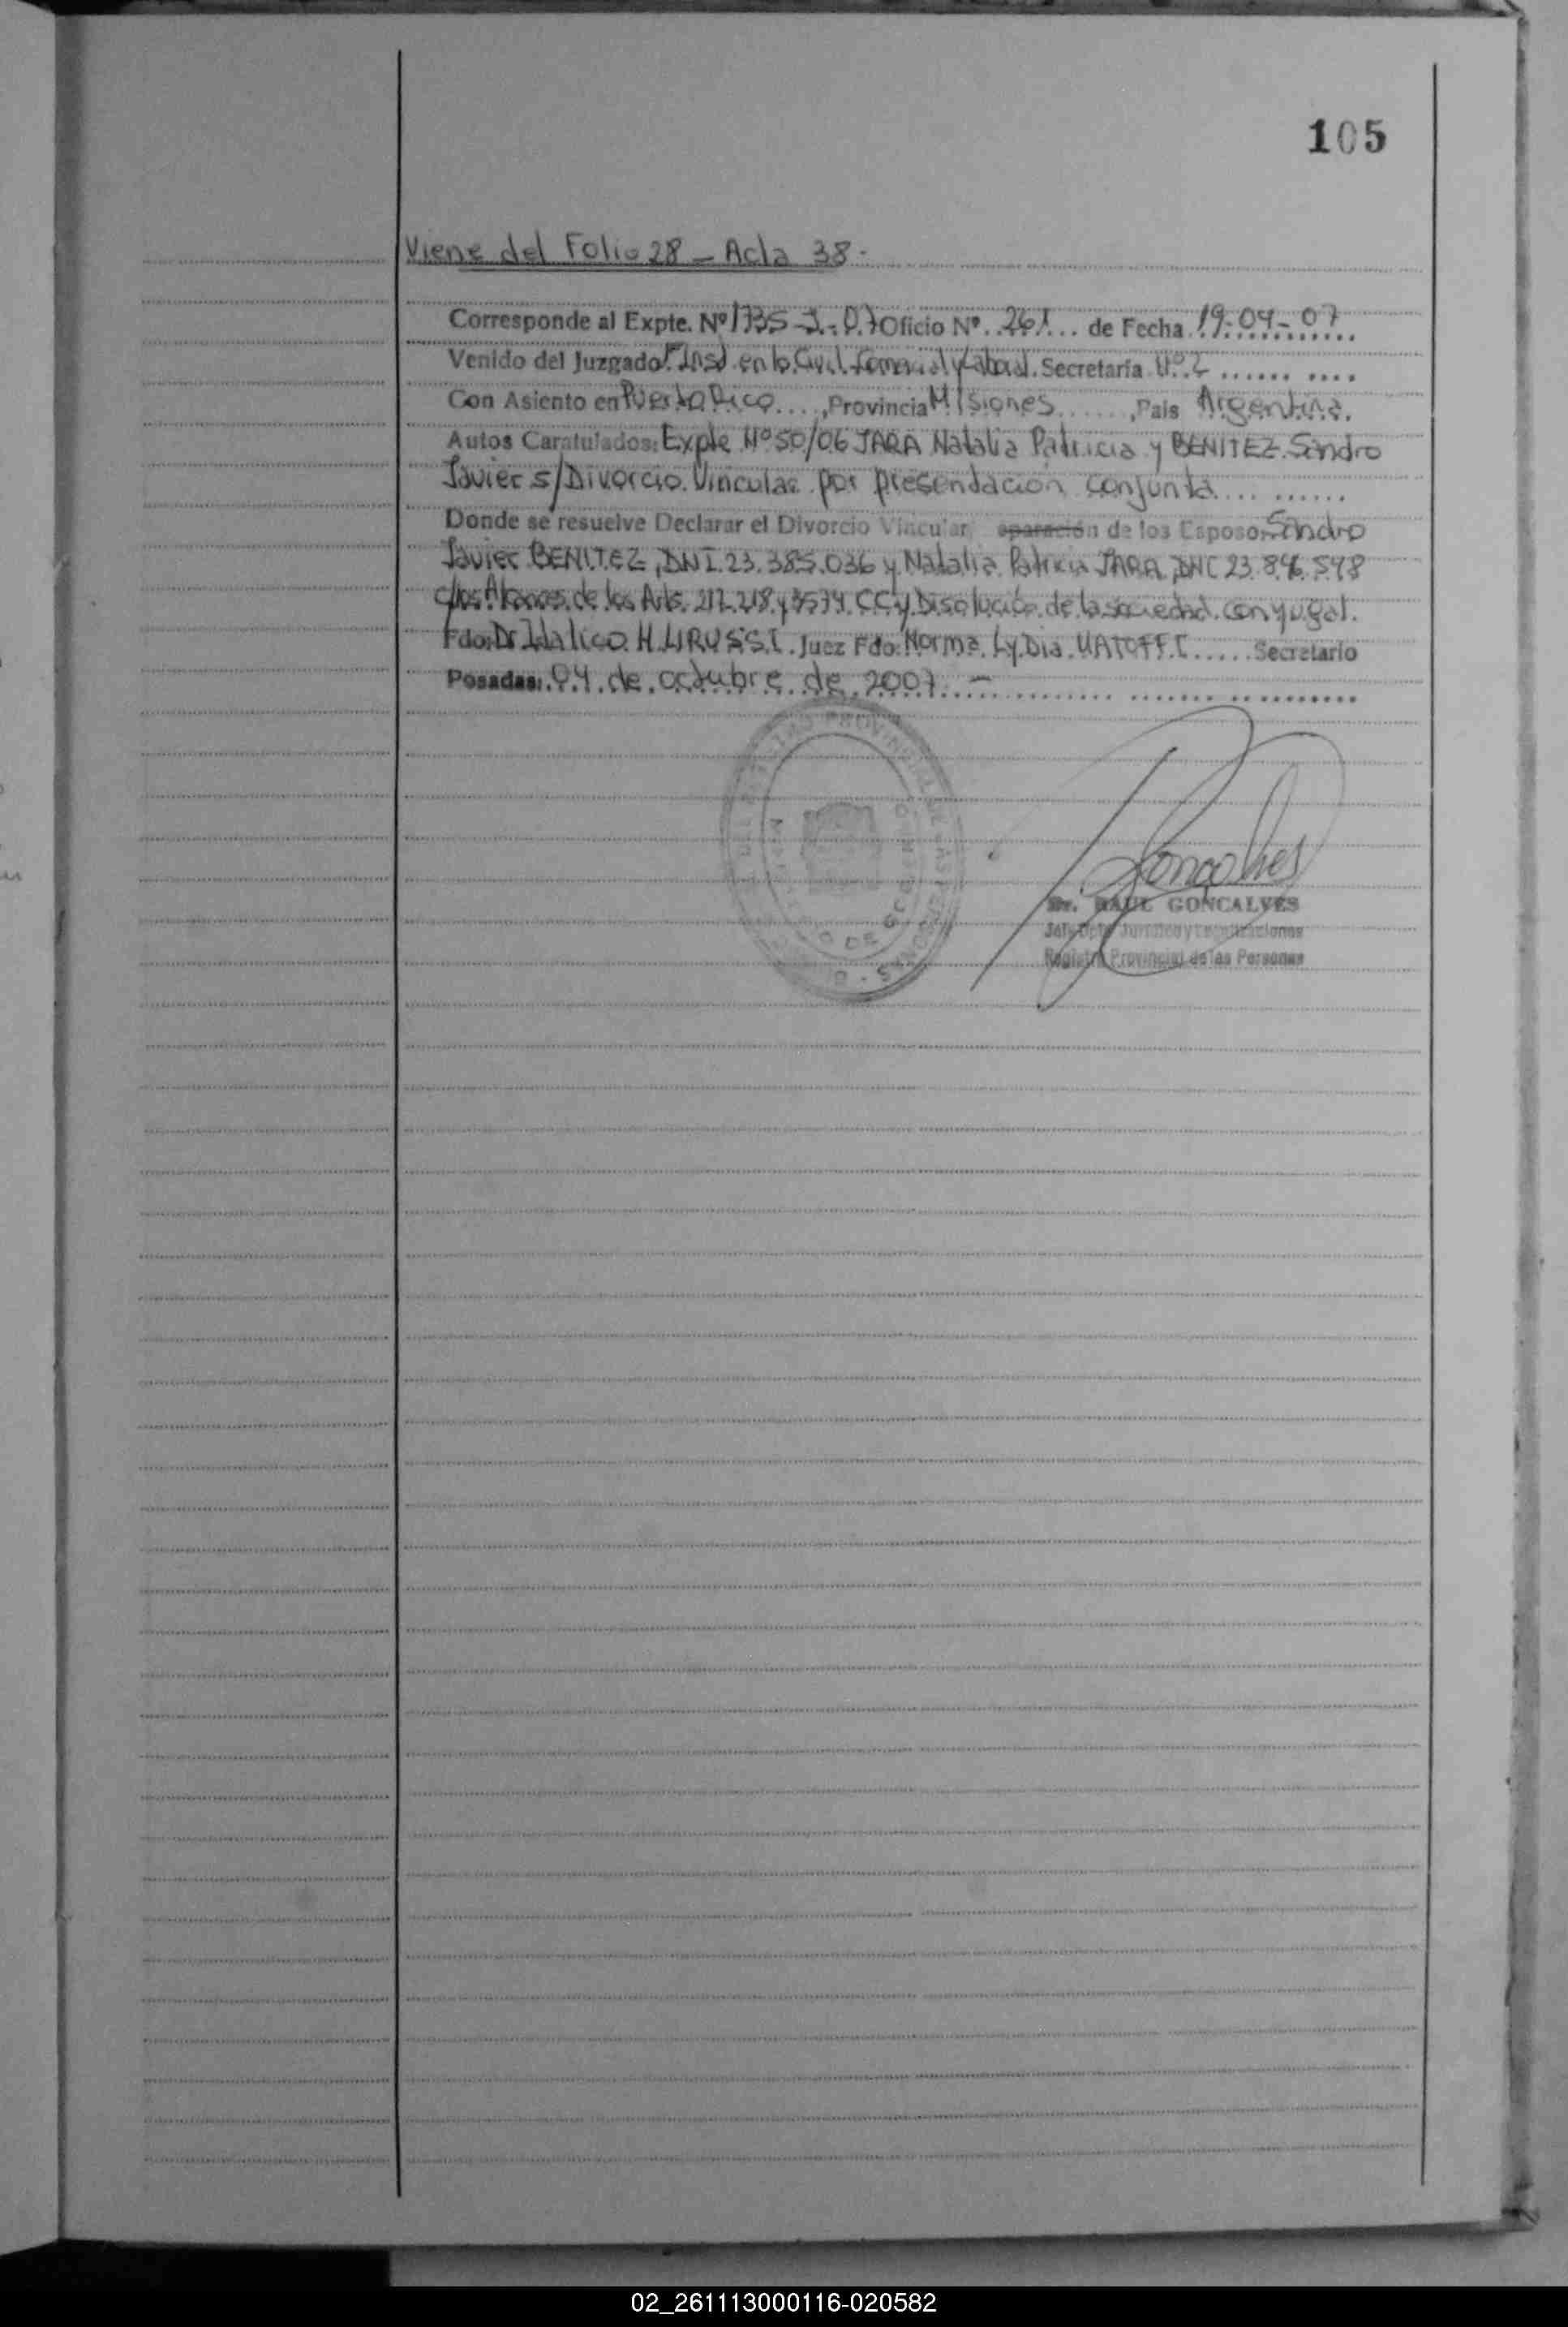 105
Viene del Folio 28 - Acta 38 -
Corresponde al Expte. Nº 1735-J-07 Oficio Nº 261 de Fecha 19-04-07
Venido del Juzgado 1ª Inst en lo Civil Comercial y Laboral. Secretaría Nº 2
Con Asiento en Puerto Rico, Provincia Misiones, Pais Argentina.
Autos Caratulados: Expte Nº 50/06 JARA Natalia Patricia y BENITEZ Sandro
Javier s/Divorcio Vincular por presentación conjunta
Donde se resuelve Declarar el Divorcio Vincular eparación de los Esposos Sandro
Javier BENITEZ, DNI 23.385.036 y Natalia Patricia JARA, DNI 23.846.548
c/los Alcances de los Arts. 217, 218 y 3574 CC y Disolución de la sociedad conyugal.
Fdo: Dr Idalico H. LIRUSSI. Juez Fdo: Norma Lydia Secretario
Posadas: 04 de octubre de 2007 -
Gonçalves
Dr. RAUL GONCALVES
Jefe Dpto Jurídico y
Registro Provincial de las Personas
02_261113000116-020582